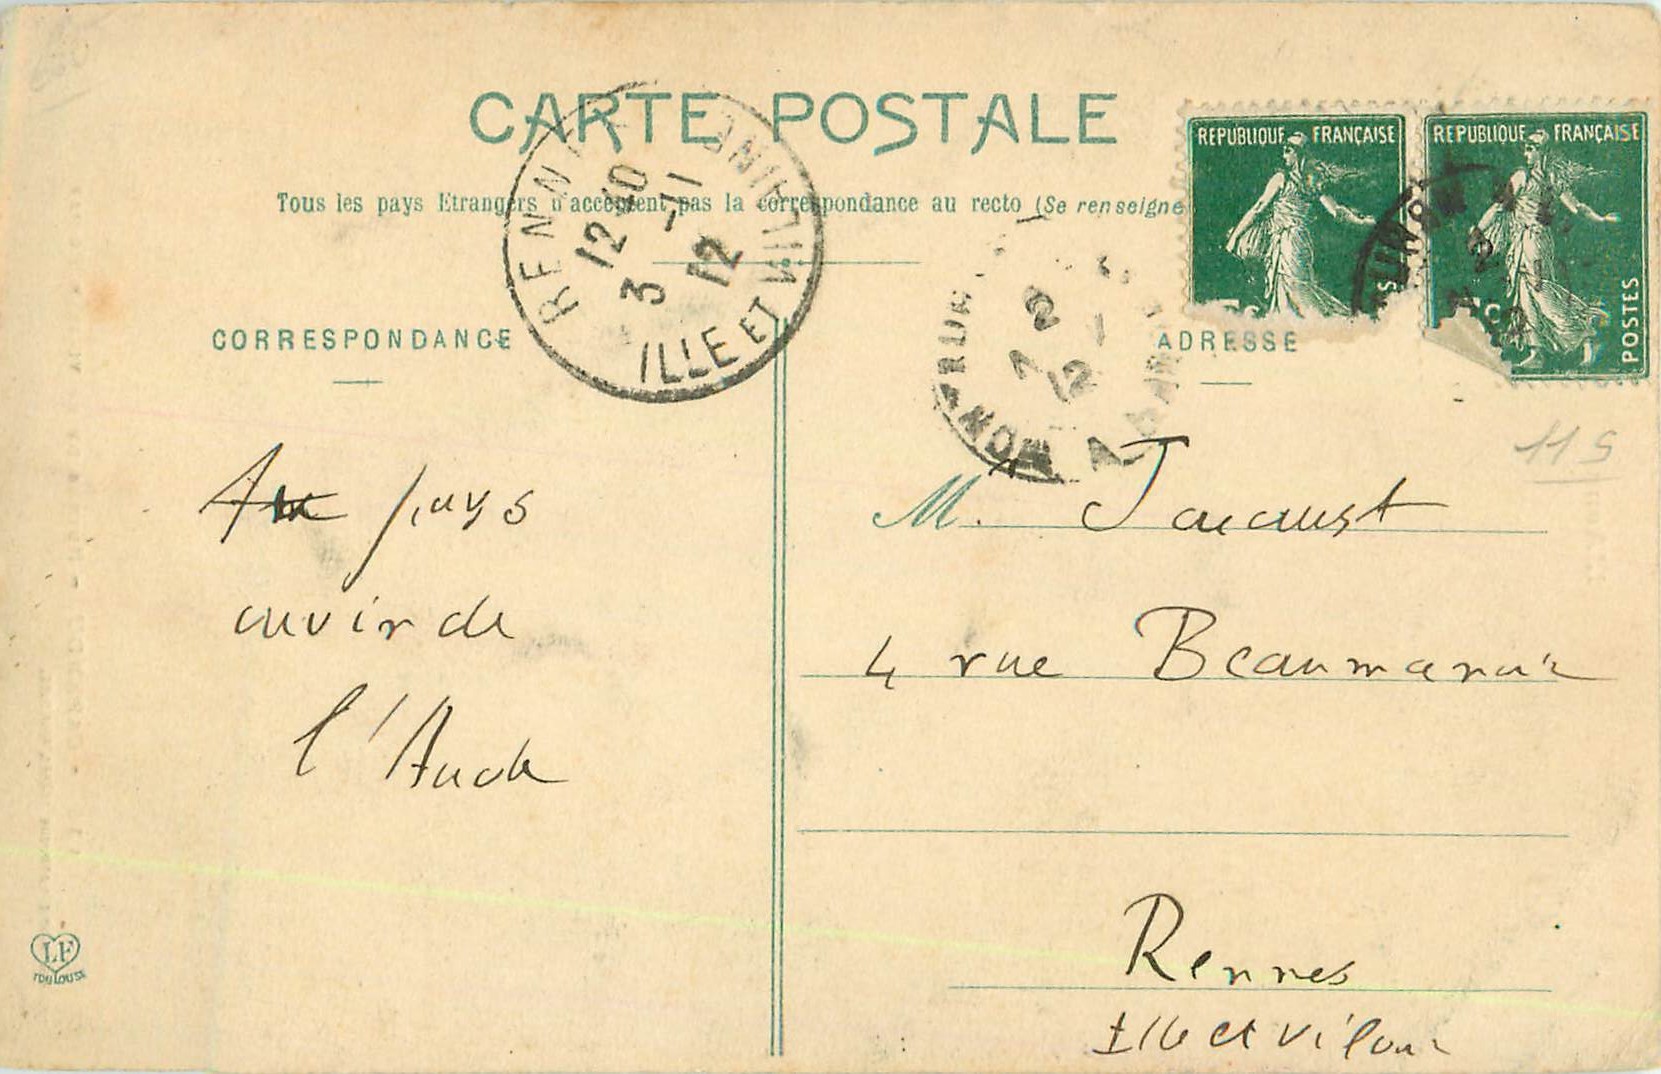 CARTE POSTALE
Tous les pays Etrangers n'acceptent pas la correspondance au recto (Se renseigne
REPUBLIQUE FRANÇAISE
REPUBLIQUE FRANÇAISE
POSTES
RENNES
12 40
3 -11
12
ILLE ET VILAINE
2 -1
12
CORRESPONDANCE
ADRESSE
115
pays
l'Aude
M.
4 rue Beaumanoir
Rennes
Ille et Vilaine
LF
TOULOUSE